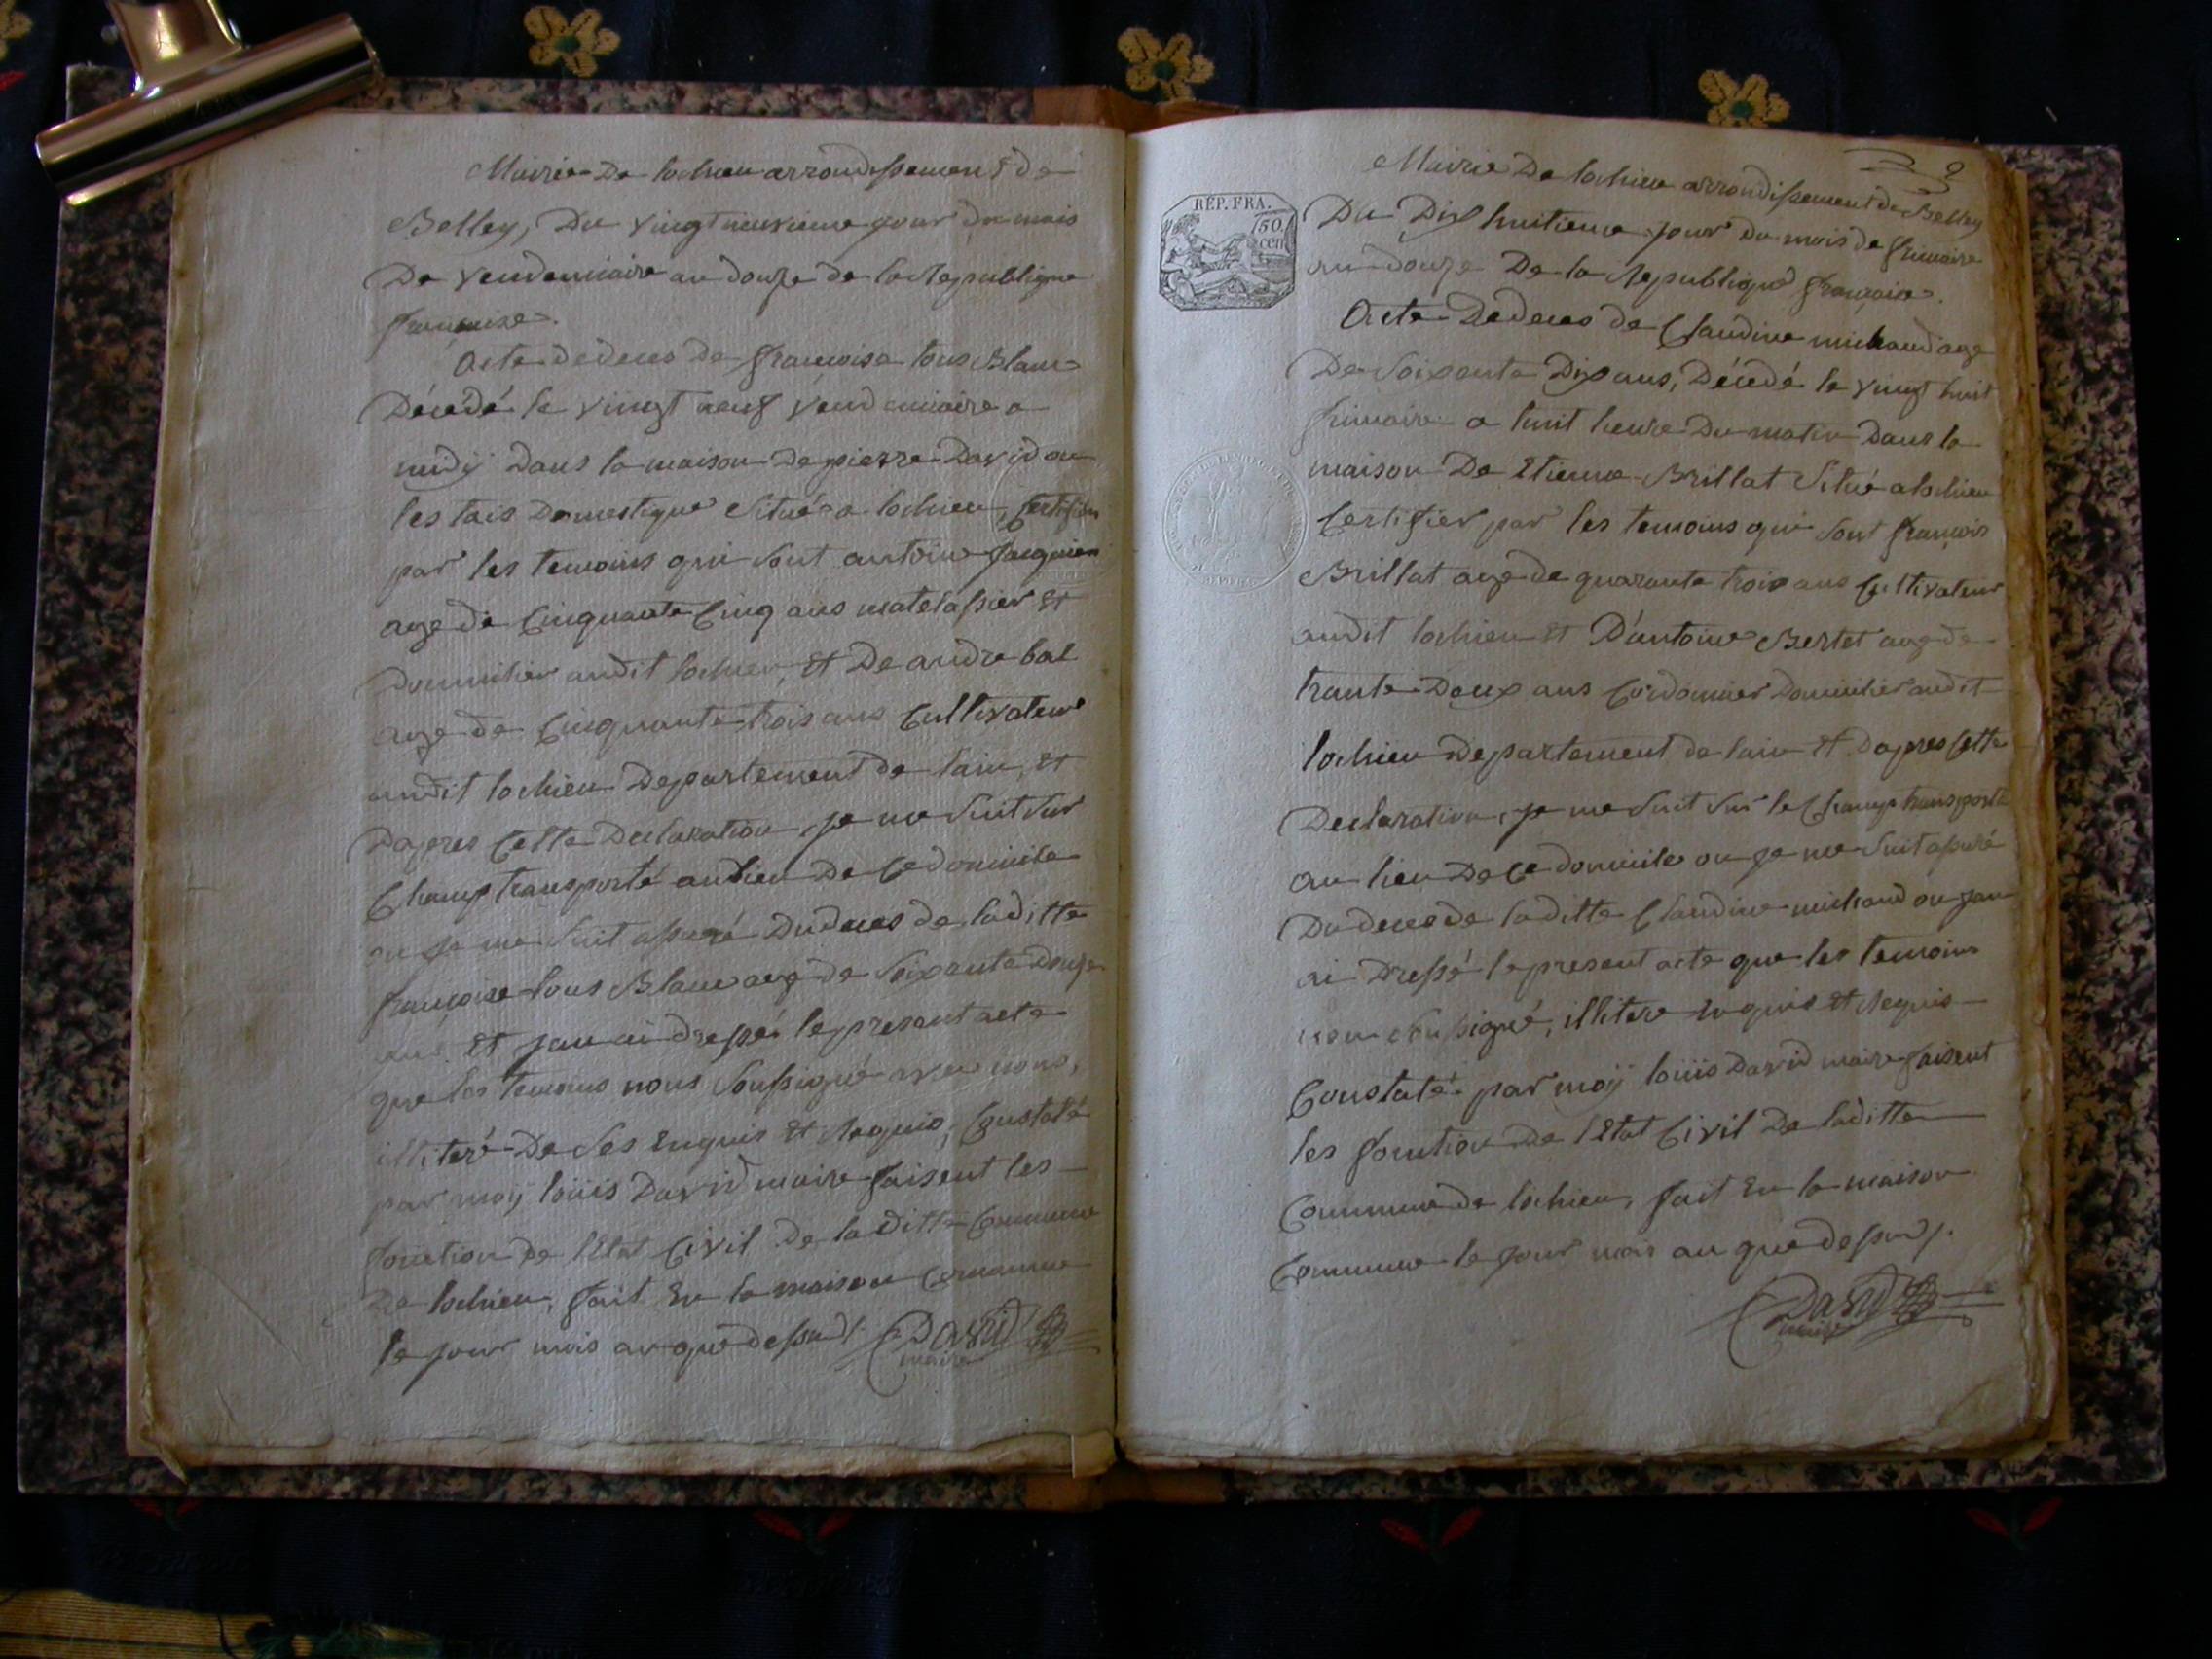 Mairie De lochieu arrondissement de
Belley, Du vingt neuvieme jour du mois
De vendemiaire an douze de la Republique
francaise.
Acte de deces de francoise tous Blanc
Décédé le vingt neuf vendemiaire a
midÿ dans la maison de pierre David ou
les tais Domestique Situé a lochieu, Certifier
par les temoins qui sont antoine Jacquier
age de Cinquante Cinq ans matelassier Et
Domicilier audit lochieu, Et De andre bal
age de Cinquante trois ans Cultivateur
audit lochieu Departement de lain, Et
Dapres Cette Declaration, je me suit sur
Champ transporté au lieu De Ce domicile
ou je me suit assuré Du deces de laditte
francoise tous Blanc age de Soixante Douze
ans. Et jan ai dressé le present acte
que les temoins nous Soussigné avec nous,
illiteré De Ses Enquis Et Requis, Constaté
par moÿ loüis David maire faisent les
fonction de l'Etat Civil de laditte Commune
De lochieu, fait En la maison Commune
le jour mois an que dessus
David
maire
2
Mairie De lochieu arrondissement de Belley
Du Dix huitieme jour du mois de frimaire
an douze De la Republique francaise.
Acte De deces de Claudine michaud age
De Soixante Dix ans, Décédé le vingt huit
frimaire a huit heure Du matin Dans la
maison De Etienne Brillat Situé a lochieu
Certifier par les temoins qui sont francois
Brillat age de quarante trois ans Cultivateur
audit lochieu Et D'antoine Bertet age de
trante Deux ans Cordonnier Domicilier audit
lochieu Departement de lain Et Dapres Cette
Declaration, je me suit sur le Champ transporté
au lieu De Ce domicile ou je me suit assuré
Du deces de laditte Claudine michaud ou jan
ai Dressé le present acte que les temoins
non Soussigné, illitere Enquis Et Requis
Constaté par moÿ loüis David maire faisent
les fonction De l'Etat Civil De laditte
Commune de lochieu, fait En la maison
Commune le jour mois an que dessus.
David
maire
RÉP. FRA.
50
cen